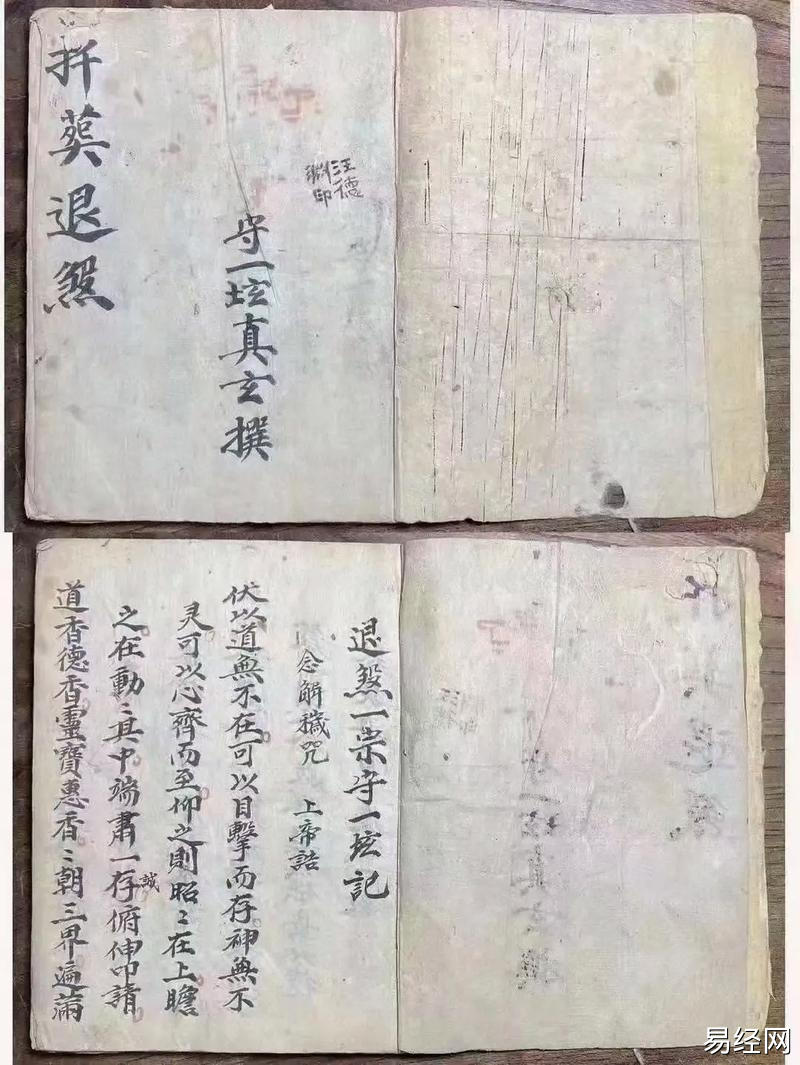 汪德
渊印
守一坛真玄撰
扦葬退煞
退煞一宗守一坛記
念解穢咒 上帝誥
伏以道無不在可以目擊而存神無不
灵可以心齊而至仰之則昭〻在上瞻
之在動〻其中端肅一存誠俯伸叩請
道香德香靈寶惠香〻朝三界遍滿
易经网